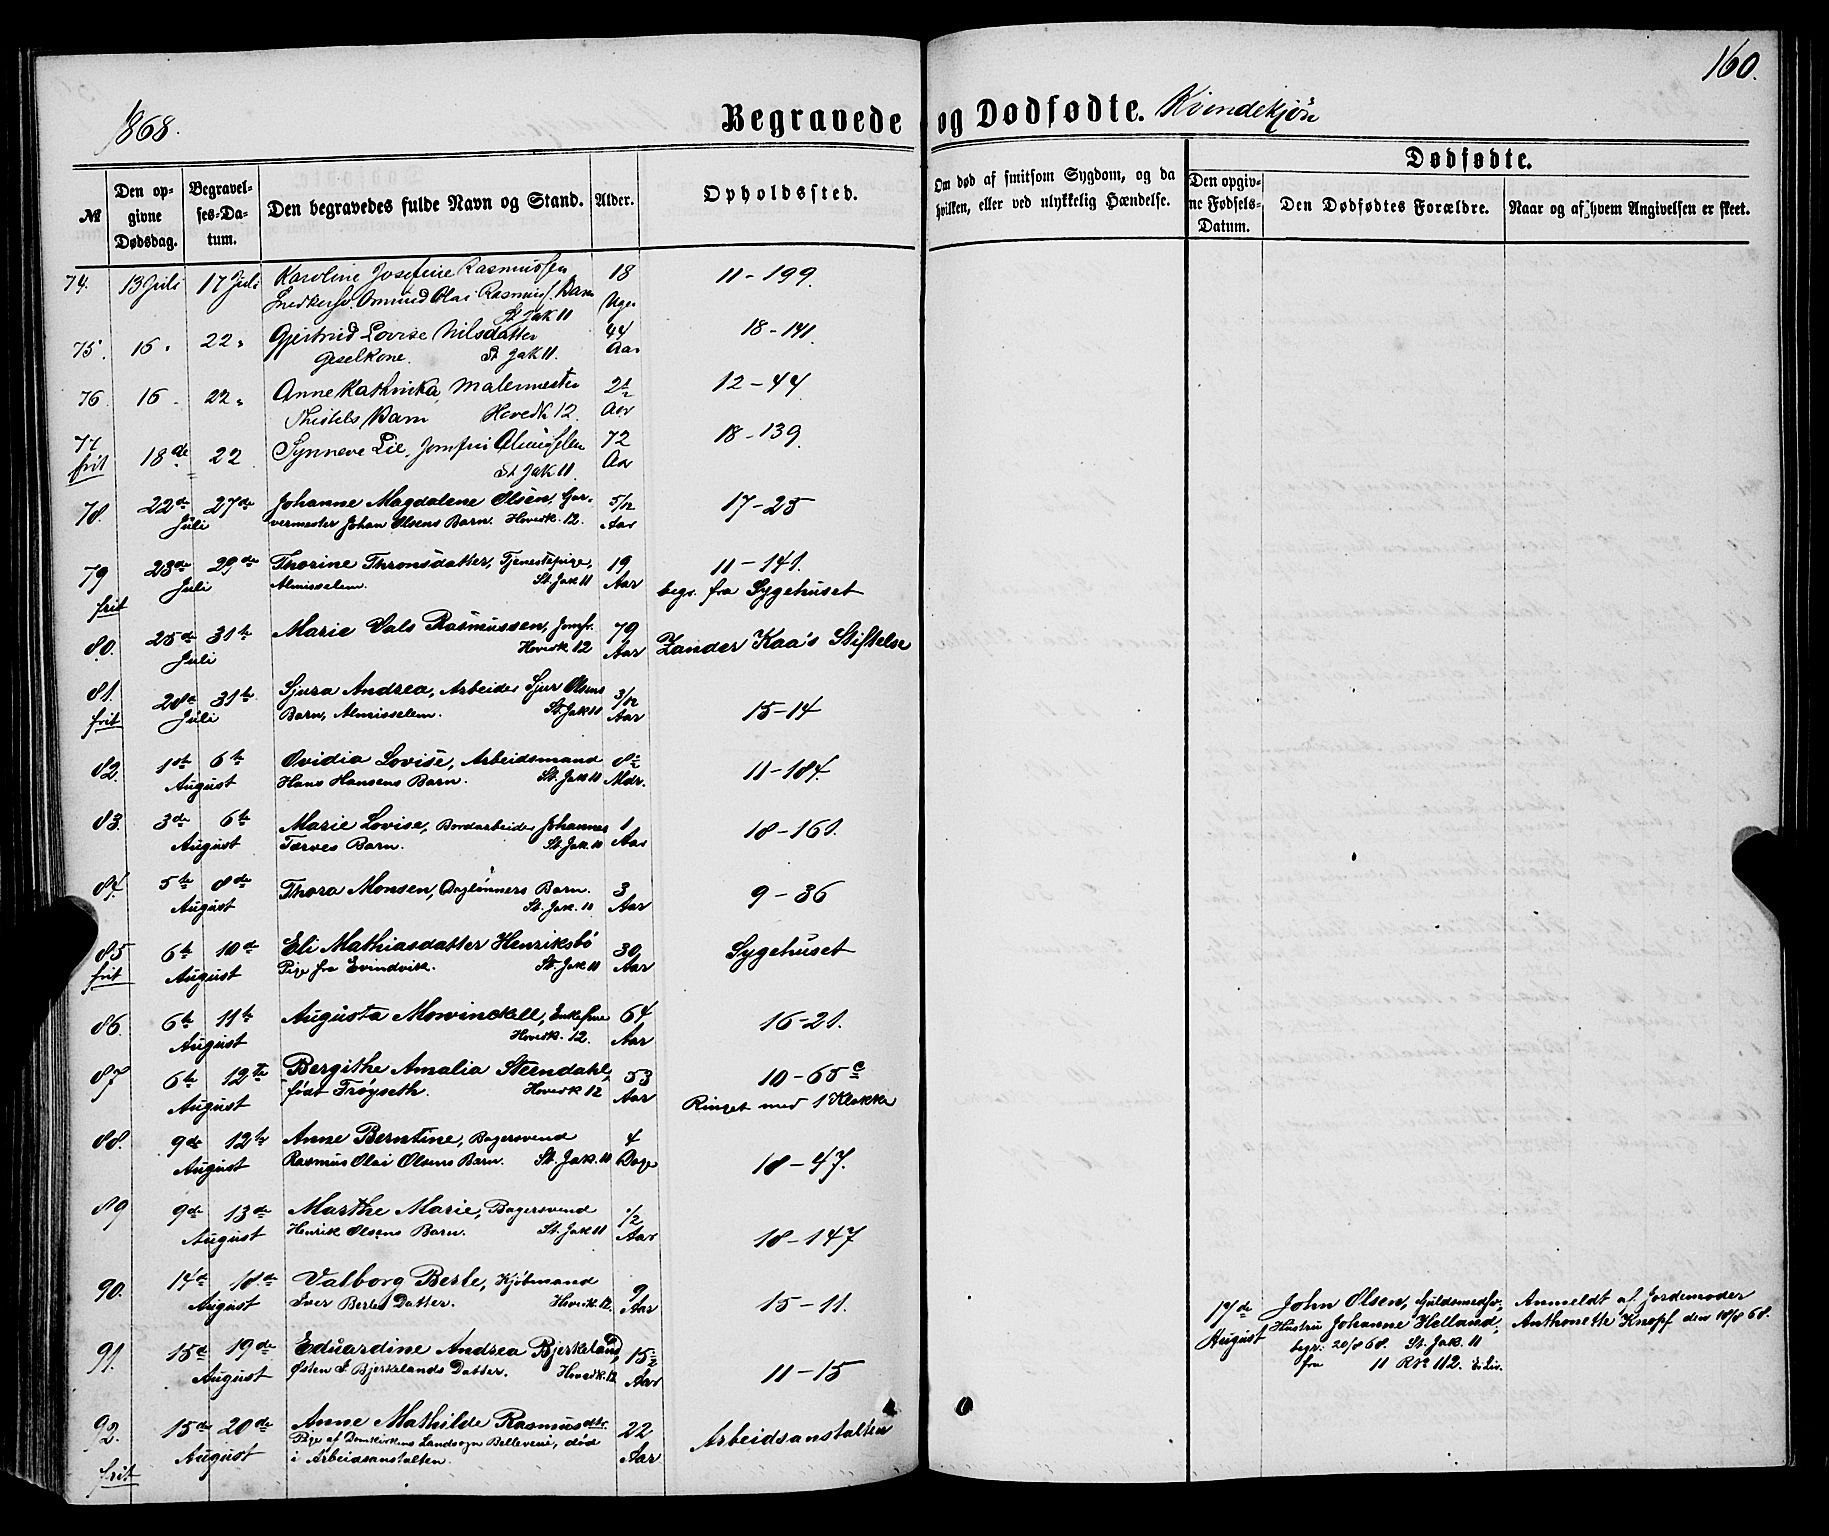 160.
1868.
Begravede og Dødfødte. Kvindekjøn
№
Den opgivne Dødsdag.
Begravelses-Datum.
Den begravedes fulde Navn og Stand.
Alder.
Opholdssted.
Om død af smitsom Sygdom, og da hvilken, eller ved ulykkelig Hændelse.
Dødfødte.
Den opgivne Fødsels-Datum.
Den Dødfødtes Forældre.
Naar og af hvem Angivelsen er skeet.
74. 13 Juli 17 Juli Karoline Josefine Rasmussen 18 11-199.
Omund Olai Rasmuss. Barn Uger
St Jak 11
75. 16 " 22 " Gjertrud Lovise Nilsdatter 44 18-141.
Geselkone. St Jak 11. Aar
76. 16 " 22 " Anne Kathrika, Malermester 2½ 12-44
Thistels Barn Hovedk 12. Aar
77 18de 22 Synneve Lie, Jomfru Almisselem 72 18-139
frit St Jak 11. Aar
78. 22de 27de Johanne Magdalene Olsen, Gar- 5/12 17-25
Juli vermester Johan Olsens Barn. Hovedk. 12. Aar
79 23de 29de Thorine Thronsdatter, Tjenestepige, 19 11-141.
frit Juli Almisselem. St. Jak 11 Aar begr. fra Sygehuset
80. 25de 31te Marie Vals Rasmussen, Jomfr. 79 Zander Kaa's Stiftelse
Juli Hovedk 12 Aar
81. 28de 31te Sjura Andrea, Arbeider Sjur Olsens 3/12 15-14
frit Juli Barn, Almisselem. St. Jak 11 Aar
82. 1ste 6te Ovidia Lovise, Arbeidsmand 8½ 11-184.
August Hans Hansens Barn. St. Jak 11 Mdr.
83. 3de 6te Marie Lovise, Bordarbeider Johannes 1 18-161.
August Tærves Barn. St. Jak. 11 Aar
84. 5te 8de Thora Monsen, Daglønners Barn. 3 9-36
August St. Jak. 11 Aar
85 6te 10de Eli Mathiasdatter Henriksbø 30 Sygehuset
frit August Pige fra Evindvik. St. Jak 11 Aar
86. 6te 11te Augusta Mowinckell, Enkefrue 64 16-21.
August Hovedk. 12. Aar
87 6te 12te Bergithe Amalia Steendahl, 53 10-65c
August født Frøyseth. Hovedk 12 Aar Ringet med 1 Klokke
88. 9de 12te Anne Berntine, Bagersvend 4 18-47.
August Rasmus Olai Olsens Barn. St. Jak. 11 Dage
89 9de 13de Marthe Marie, Bagersvend ½ 18-147
August Henrik Olsens Barn. St. Jak 11 Aar
90. 14de 18de Valborg Berle, Kjøbmand 9 15-11.
August Iver Berles Datter. Hovedk. 12. Aar
17de John Olsen, Guldsmedsv. Anmeldt af Jordemoder
August Hustru Johanne Helland, Anthonette Knopf den 18/8 68.
begr. 20/8 68. St. Jak. 11
fra 11 R№ 112.
91. 15de 19de Eduardine Andrea Bjerkeland, 15½ 11-15
August Østen I Bjerkelands Datter. Hovedk. 12 Aar
92. 15de 20de Anne Mathilde Rasmusdtr. 22 Arbeidsanstalten
August Pige af Domkirkens Landsogn Belleveue, død
frit i Arbeidsanstalten. Aar